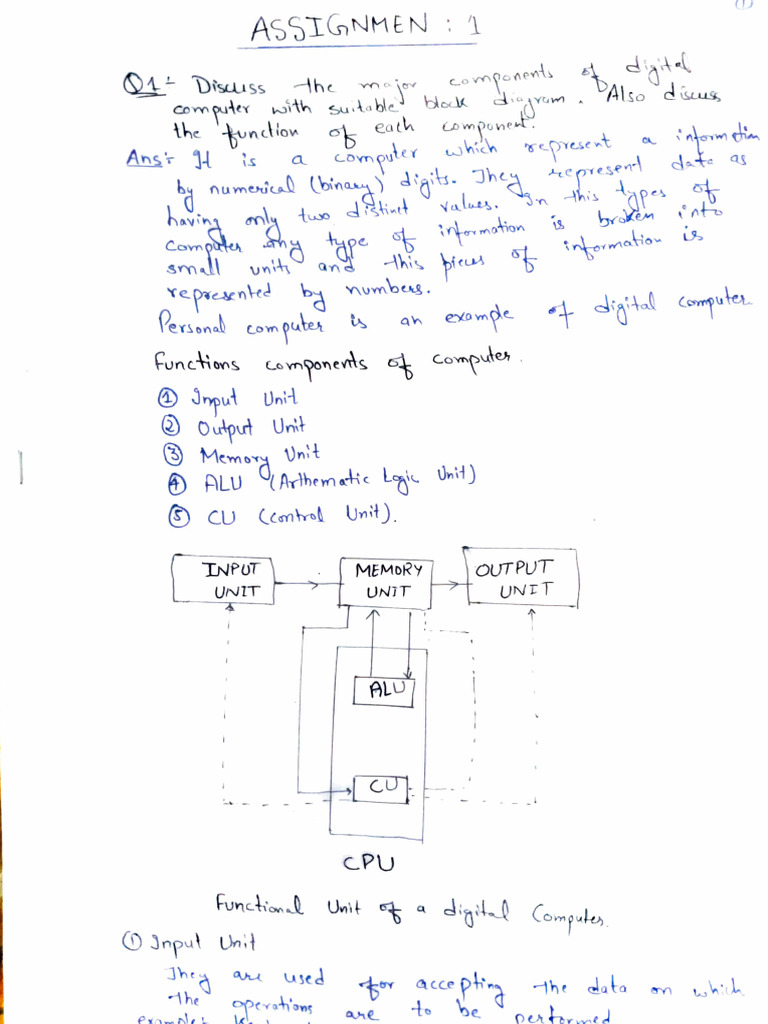 1
ASSIGNMEN : 1
Q1:- Discuss the major components of digital
computer with suitable block diagram. Also discuss
the function of each component.
Ans:- It is a computer which represent a information
by numerical (binary) digits. They represent data as
having only two distinct values. In this types of
computer any type of information is broken into
small units and this pieces of information is
represented by numbers.
Personal computer is an example of digital computer.
Functions components of computer.
1 Input Unit
2 Output Unit
3 Memory Unit
4 ALU (Arthematic Logic Unit)
5 CU (Control Unit).
INPUT UNIT
MEMORY UNIT
OUTPUT UNIT
ALU
CU
CPU
Functional Unit of a digital Computer.
1 Input Unit
They are used for accepting the data on which
the operations are to be performed
example: